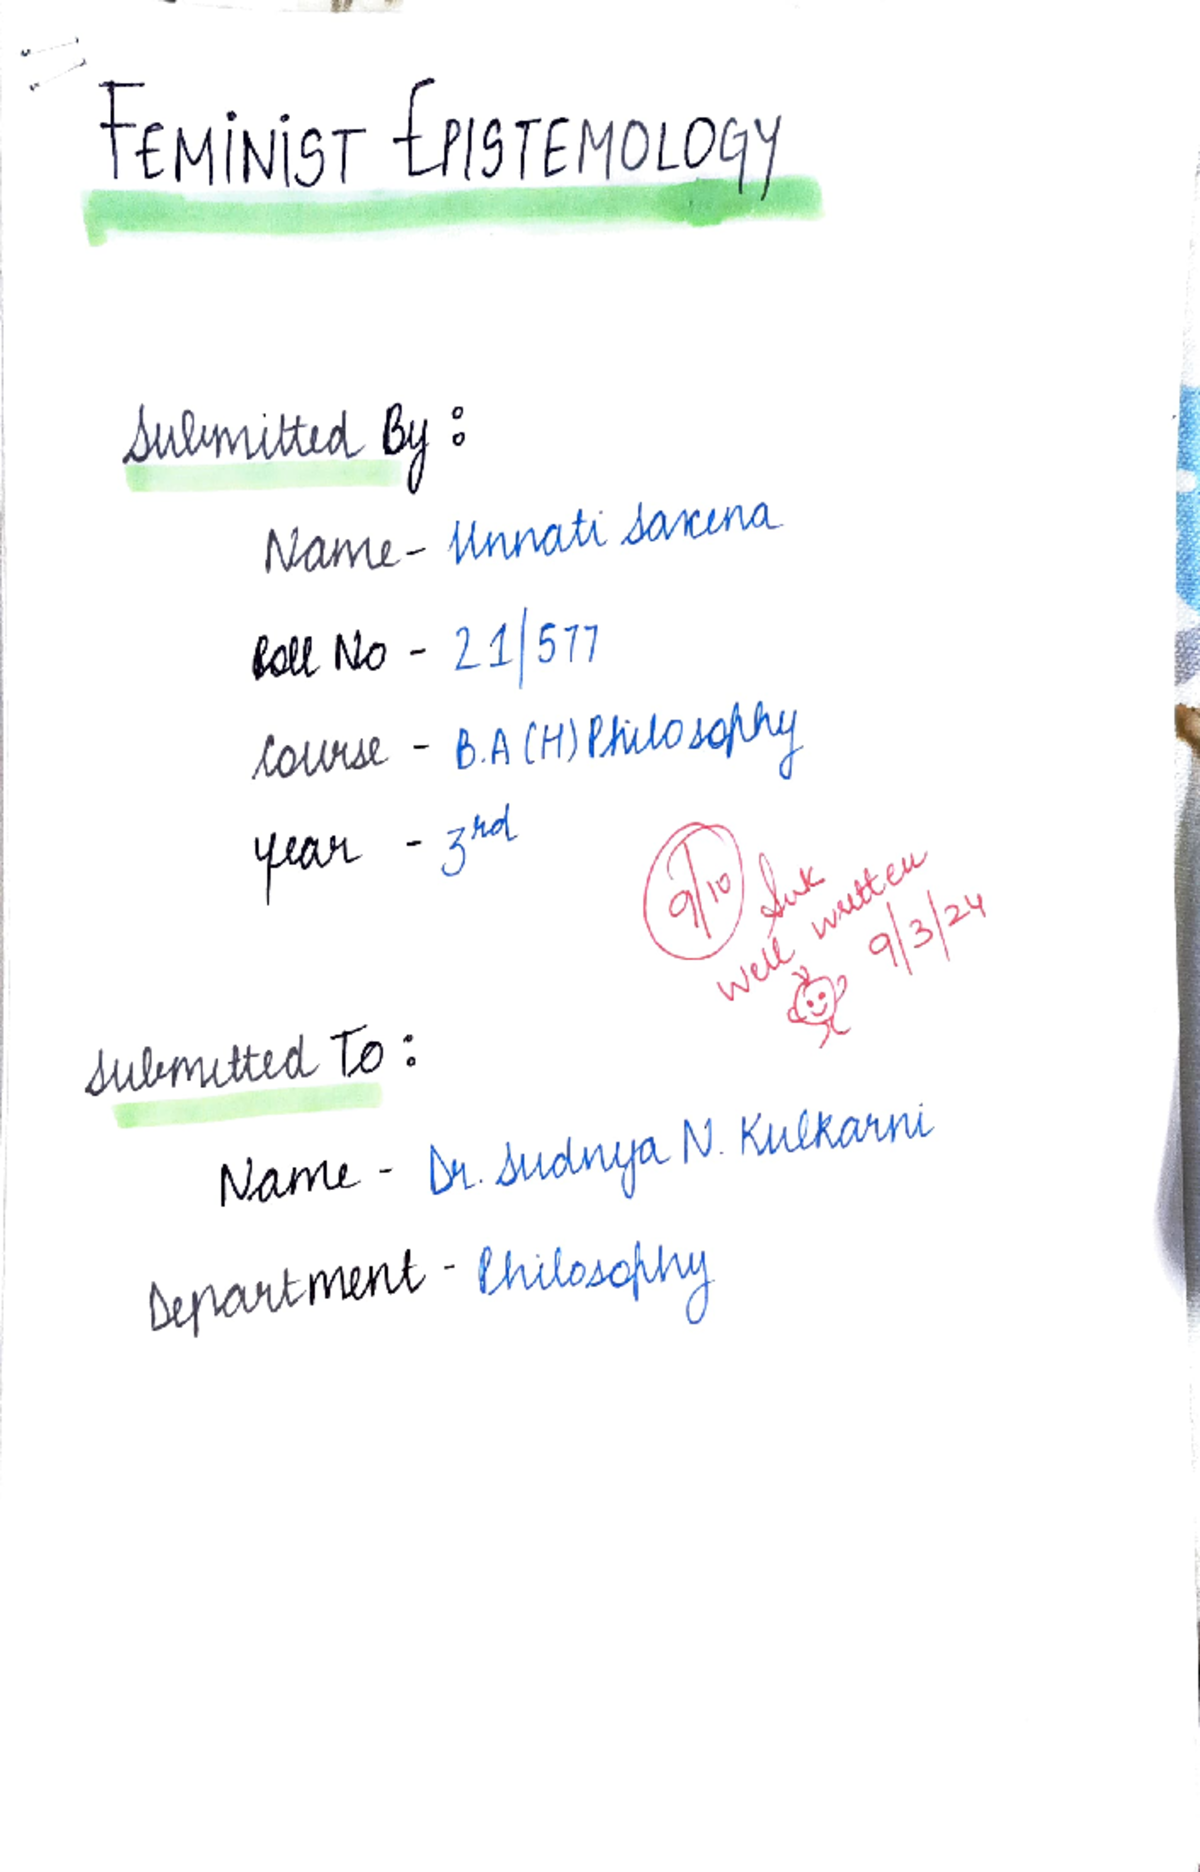 FEMINIST EPISTEMOLOGY
Submitted By :
Name - Unnati Saxena
Roll No - 21/577
Course - B.A (H) Philosophy
Year - 3rd
9/10
Well written
9/3/24
Submitted To :
Name - Dr. Sudnya N. Kulkarni
Department - Philosophy